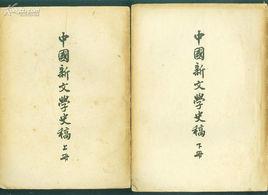 中國新文學史稿
上册
中國新文學史稿
下册